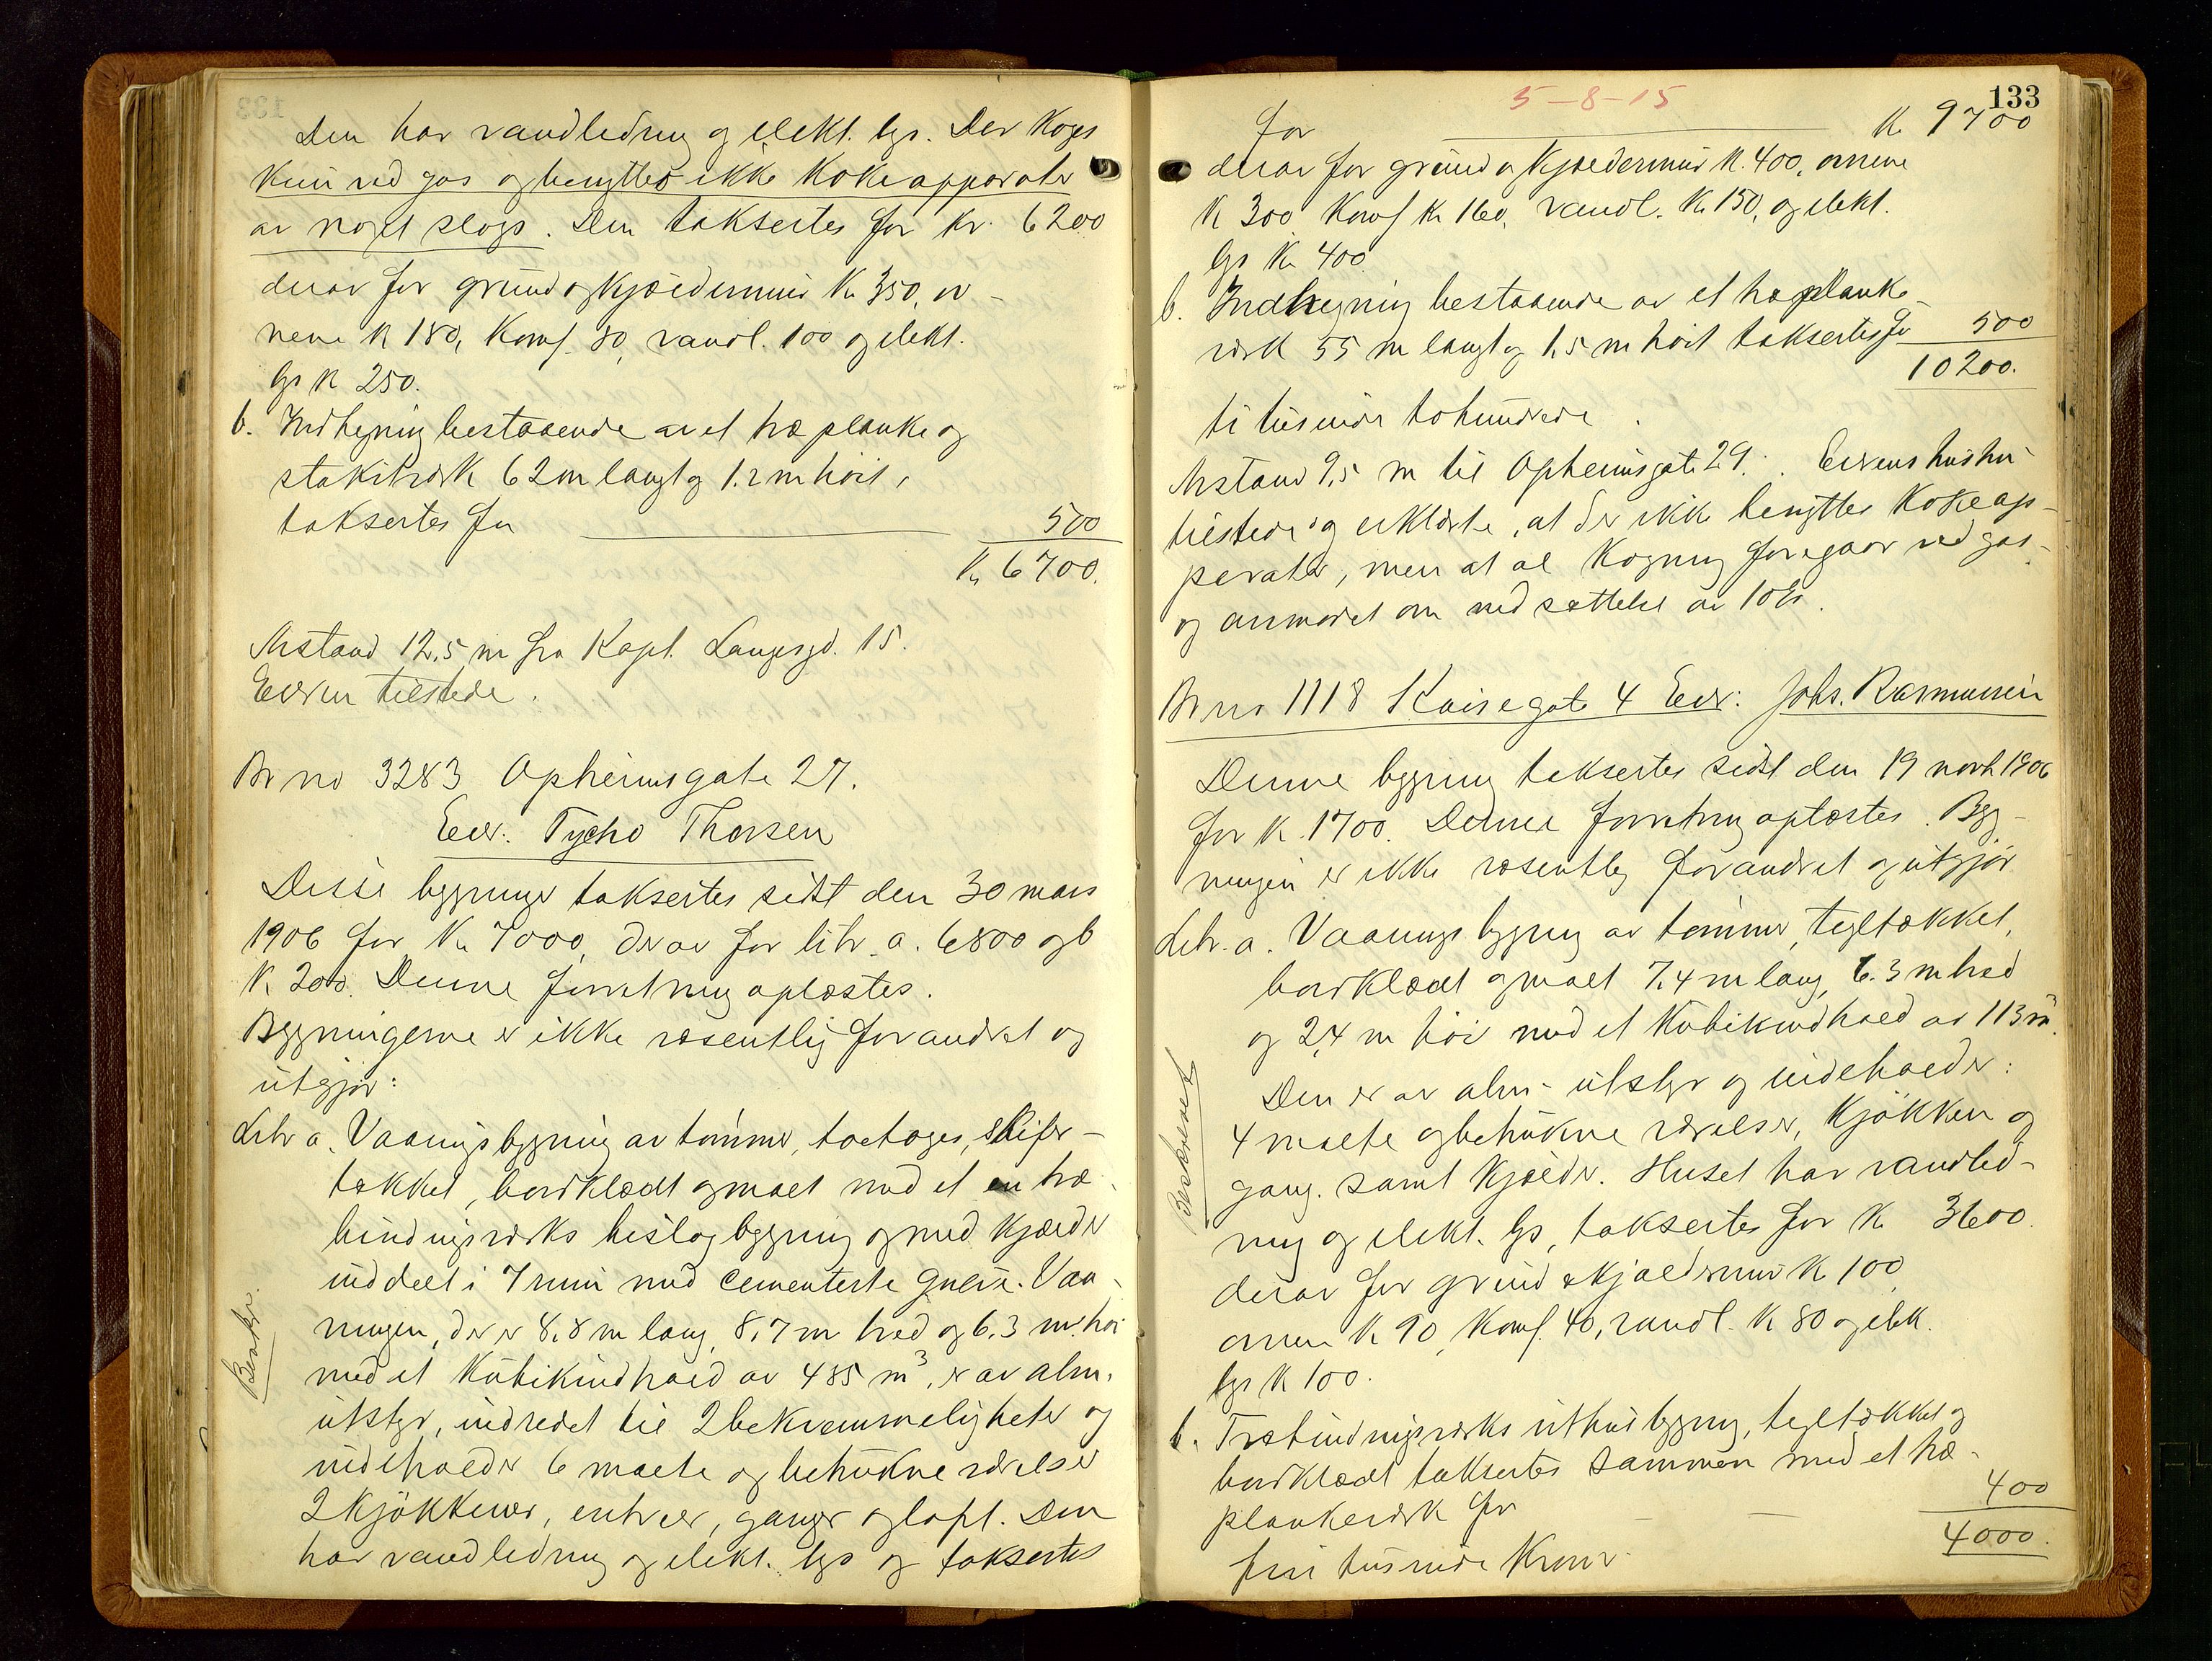 Den har vandledning og elekt. lys. Der koges
kun ved gas og benyttes ikke kokeapparater
av noget slags. Den taksertes for kr. 6200
derav for grund og kjældermur Kr 350, ov-
nene K 180, Komf. 80, vandl. 100 og elekt.
lys K 250.
b. Indhegning bestaaende av et træ planke og
stakitværk 62 m langt og 1.2 m høit,
taksertes for 500
Kr 6700.
Avstand 12,5 m fra Kapt. Langesgd. 15.
Eieren tilstede.
Br no 3283 Opheimsgate 27.
Eier: Tycho Thorsen
Disse bygninger taksertes sidst den 30 mars
1906 for Kr 7000, derav for litr. a. 6800 og b
K 200. Denne forretning oplæstes.
Bygningerne er ikke væsentlig forandret og
utgjør:
Litr a. Vaaningsbygning av tømmer, toetages, skifer-
tækket, bordklædt og malt med et en træ-
bindingsverks bislagbygning og med kjælder
inddelt i 7 rum med cementerte gulve. Vaa-
ningen, der er 8,8 m lang, 8,7 m bred og 6.3 m. høi
med et kubikindhold av 485 m³, er av alm.
utstyr, indredet til 2 bekvemmeligheter og
indeholder 6 malte og betrukne værelser
2 kjøkkener, entreer, ganger og loft. Den
har vandledning og elekt. lys og taksertes
Beskr.
133
5-8-15
for K 9700
derav for grund og kjældermur K. 400, ovnene
K 300 Komf Kr 160, vandl. K 150, og elekt.
lys Kr 400
b. Indhegning bestaaende av et træplanke-
værk 55 m langt og 1,5 m høit taksertes for 500
10200.
ti tusinde tohundrede.
Avstand 9,5 m til Opheimsgate 29. Eierens hustru
tilstede og erklærte, at der ikke benyttes kokeap-
perater, men at al kogning foregaar ved gas-
og anmodet om nedsættelse av 10 %.
Br no 1118 Kaisegate 4 Eier: Johs. Rasmussen
Denne bygning taksertes sidst den 19 novb 1906
for K 1700. Denne forretning oplæstes. Byg-
ningen er ikke væsentlig forandret og utgjør
Litr. a. Vaaningsbygning av tømmer, tegltækket,
bordklædt og malt 7,4 m lang, 6.3 m bred
og 2,4 m høi med et kubikindhold av 113 m³.
Den er av alm. utstyr og indeholder:
4 malte og betrukne værelser, kjøkken og
gang. samt kjælder. Huset har vandled-
ning og elekt. lys, taksertes for K 3600.
derav for grund & kjældermur K 100
ovnen K 90, Komf. 40, vandl. K 80 og elek.
lys K 100.
b. Træbindingsverks uthusbygning, tegltækket og
bordklædt taksertes sammen med et træ-
plankeværk for 400
4000.
fire tusinde Kroner.